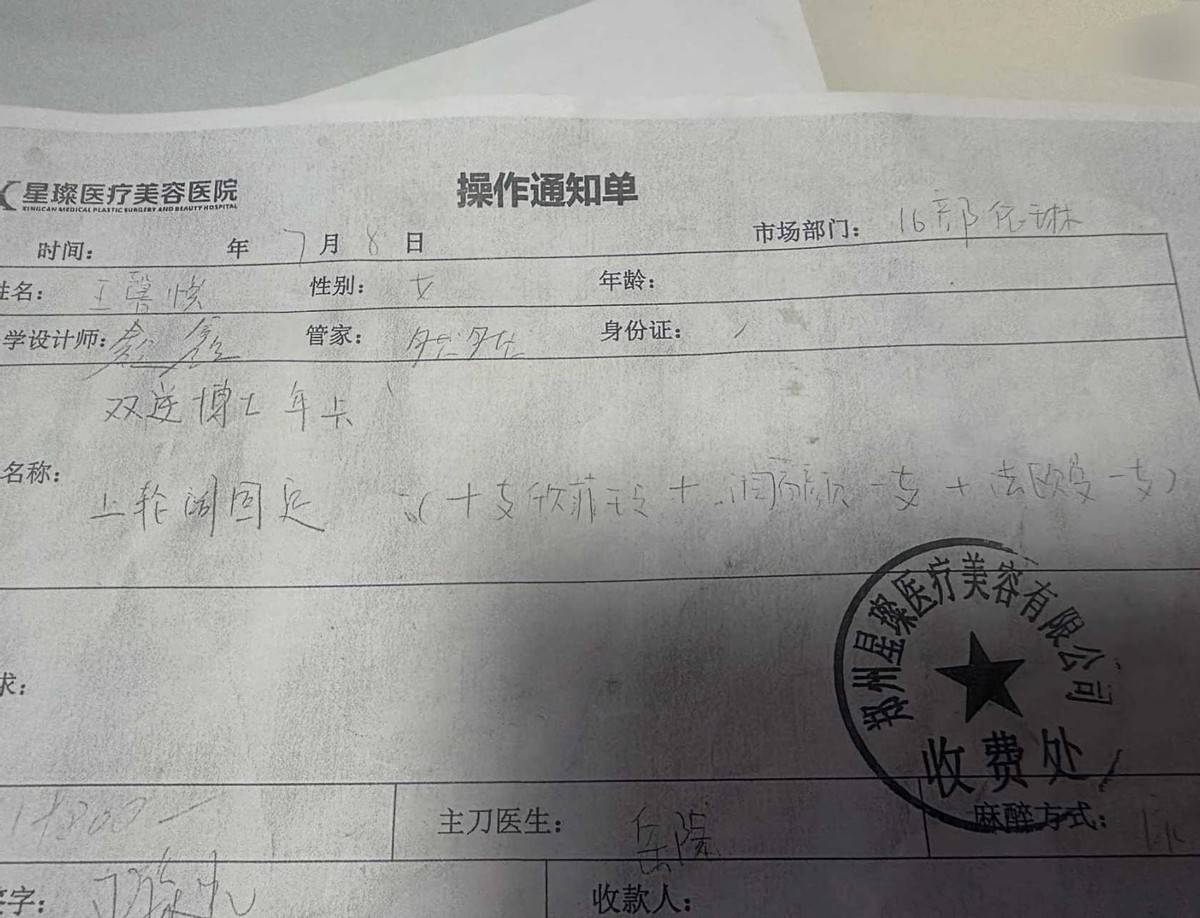 星璨医疗美容医院
XINGCAN MEDICAL PLASTIC SURGERY AND BEAUTY HOSPITAL
操作通知单
时间: 年 7 月 8 日 市场部门: 16部
姓名: 王 性别: 女 年龄:
学设计师: 管家: 身份证:
双逆博士年卡
名称:
上轮阔固定 (十支欣菲 + 一支 + 法欧曼一支)
郑州星璨医疗美容有限公司
收费处
求:
主刀医生: 岳院 麻醉方式:
签字: 收款人: